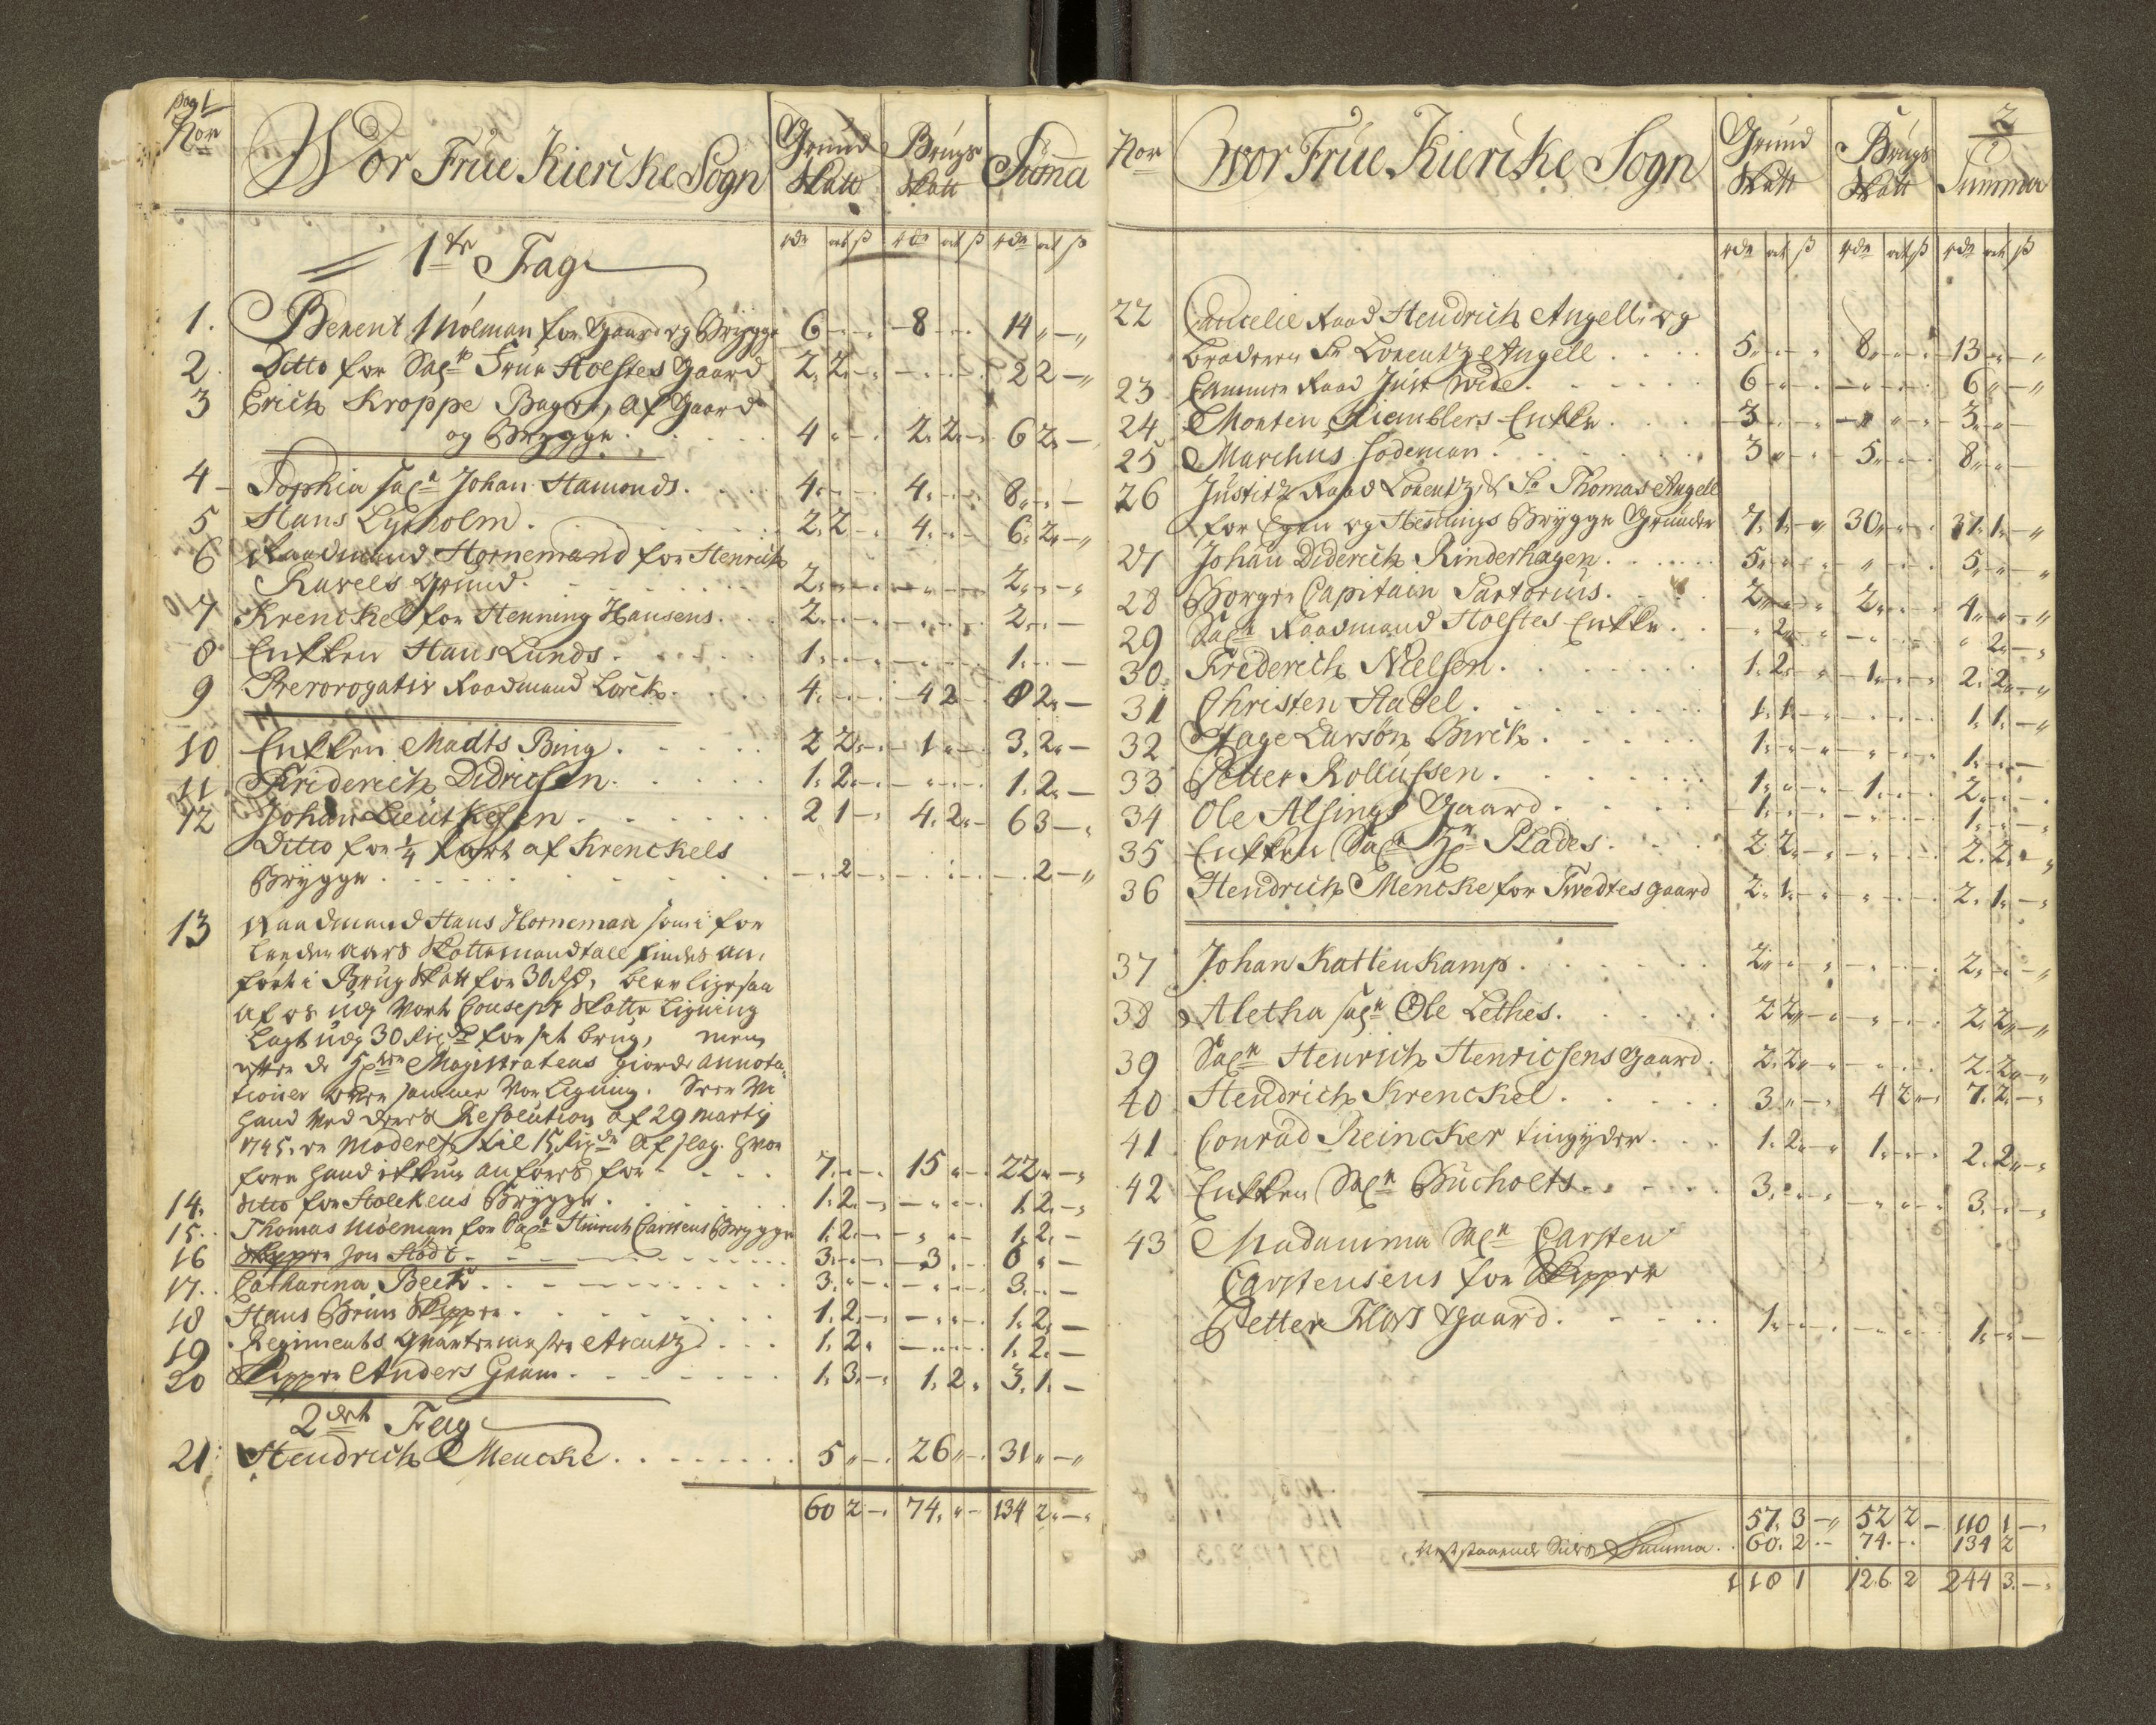 pag 1
Nor Wor Frue Kiericke Sogn Grund Skatt Brugs Skatt Suma
1te Frag rdr ort ß rdr ort ß rdr ort ß
1. Berent Mölman for Gaard og Brygge 6 8 14
2. Ditto for Sal Frue Holstes Gaard 2. 2 2 2
3 Erich Kroppe Bager, af Gaard
og Brygge 4 2. 2 6 2
4 Sophia sal Johan Hamonds 4 4 8
5 Hans Lysholm 2. 2 4 6. 2
6 Raadmand Hornemand for Henrich
Ravels Grund 2 2
7 Krenckel for Henning Hansens 2 2
8 Enkken Hans Lunds 1. 1.
9 Prerorogativ Raadmand Lorck 4 4 2 8 2
10 Enkken Madts Bing 2 2 1 3. 2
11. Friderich Didricsen 1. 2 1. 2
12 Johan Lütkesen 2 1 4. 2 6 3
Ditto for 1/4 part af Krenckels
Brygge 2 2
13 Raadmand Hans Horneman som i for
leeden aars Skattemandtall findes an,
fört i Brug Skatt for 30 Rd, blev ligesaa
af os udj vort Concept Skatte Ligning
Lagt udj 30 for sit brug, men
efter de Magistratens giorde annota-
tioner over samme Vor Ligning. blev Vi
hand ved deres Resolution af 29 Martij
1745. er Moderet til 15 Afslag. hvor
fore hand ikkun anföres for 7. 15 22
14. Ditto for Holckens Brygge 1. 2 1. 2
15. Thomas Möeman for Sal Hinrich Carstens Brygge 1. 2 1. 2
16 Skipper Jon Stodt 3. 3 6
17. Catharina Beck 3. 3.
18 Hans Brun Skipper 1. 2 1. 2
19 Regiments Qvartermester Arentz 1. 2 1. 2
20 Skipper Anders Gram 1. 3 1. 2 3. 1
2det Frag
21. Hendrich Mencke 5 26 31
60 2 74 134 2
2
Nor Wor Frue Kiericke Sogn Grund Skatt Brugs Skatt Summa
rdr ort ß rdr ort ß rdr ort ß
22 Cancelie Raad Hendrich Angell og
broderen Sr Lorentz Angell 5 8 13
23 Cammer Raad Just Wide 6 6
24 Morten Kiemblers Enkke 3 3
25 Marchus Sodeman 3 5 8
26 Justitz Raad Lorentz & Sr Thomas Angell
for Egen og Hennings Brygge Grunder 7. 1 30 37 1
27 Johan Diderich Rinderhagen 5 5
28 Borger Capitain Sartorius 2 2 4
29 Sal Raadmand Holstes Enkke 2 2
30. Friderich Nielsen 1. 2 1 2. 2
31 Christen Stabel 1. 1 1. 1
32 Hage Larsön Birck 1. 1
33 Petter Rollufsen 1. 1 2
34 Ole Alsings Gaard 1. 1
35 Enkken Sal Hr Plades 2 2 2. 2
36 Hendrich Mencke for Twedtes gaard 2. 1 2. 1
37 Johan Kattenkamp 2 2
38 Aletha sal Ole Lethes 2 2 2. 2
39 Sal Henrich Henricsens gaard 2. 2 2. 2
40 Hendrich Krenckel 3 4 2 7. 2
41 Conrad Reincker tingyder 1. 2 1. 2. 2
42 Enkken Sal Bucholts 3. 3.
43 Madamma Sal Carsten
Carstensens for Skipper
Petter Klövs gaard 1. 1.
57. 3 52 2 110 1
Modstaaende Sides Summa 60. 2 74 134 2
118 1 126 2 244 3